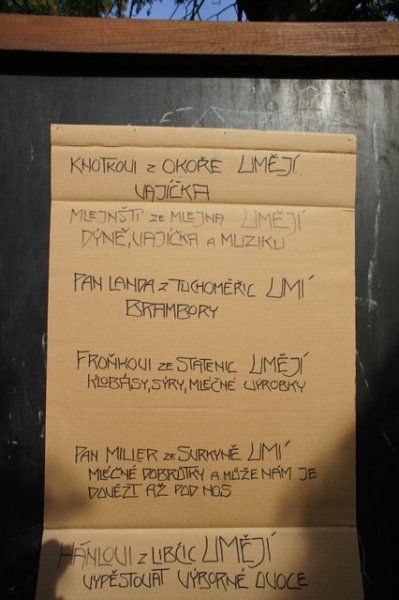 KNOTKOVI z OKOŘE UMĚJÍ
VAJÍČKA
MLEJNŠTÍ ze MLEJNA UMĚJÍ
DÝNĚ, VAJÍČKA a MUZIKU
PAN LANDA z TUCHOMĚŘIC UMÍ
BRAMBORY
FROŇKOVI ze STATENIC UMĚJÍ
KLOBÁSY, SÝRY, MLÉČNÉ VÝROBKY
PAN MILLER ze SVRKYNĚ UMÍ
MLÉČNÉ DOBRŮTKY A MŮŽE NÁM JE
DOVÉZT AŽ POD NOS
HÁNLOVI z LIBČIC UMĚJÍ
VYPĚSTOVAT VÝBORNÉ OVOCE